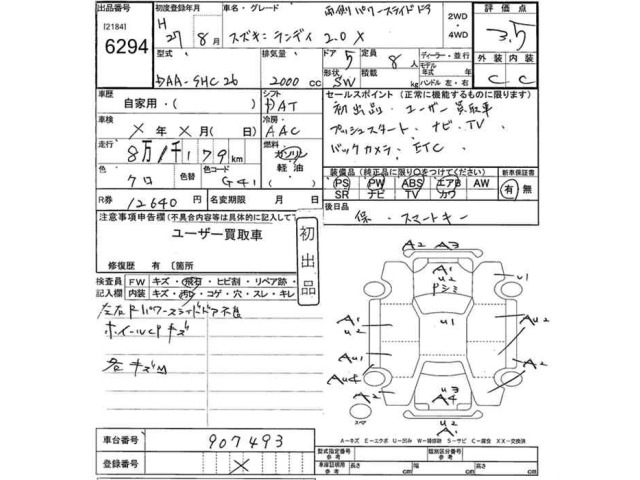 出品番号 初度登録年月 車名・グレード 両側パワースライドドア 2WD・4WD 評価点
[2184] H 27 8月 スズキ ランディ 2.0 X 3.5
6294 型式 排気量 ドア 5 定員 8人 ディーラー・並行 外装 内装
DAA-SHC26 2000cc 形状 SW 積載 kg モデル年式 年 ハンドル 左・右 C C
車歴 シフト セールスポイント(正常に機能するものに限ります)
自家用・( ) DAT 初出品・ユーザー買取車
車検 冷房 プッシュスタート・ナビ・TV
×年×月(日) AAC バックカメラ・ETC
走行 8万1千179km 燃料 ガソリン・軽油・
色 クロ 色替 色コード G41 装備品(純正品に限り○をつけてください) 新車保証書
PS PW ABS エアB AW 有・無
R券 12640円 名変期限 月 日 SR ナビ TV カワ
注意事項申告欄(不具合内容等は具体的に記入して) 後日品
ユーザー買取車 初出品 保・スマートキー
修復歴 有 〔箇所
検査員記入欄 FW キズ・飛石・ヒビ割・リペア跡・
内装 キズ・汚・コゲ・穴・スレ・キレ
左右Rパワースライドドア不良
ホイールCPキズ
各キズU
A2 A3
A1 U2 Pシミ U1
A1 U2 U1 AU2
AU1 A2
AU4 U3 A4
スマ U2 A1
A=キズ E=エクボ U=凹み W=補修跡 S=サビ C=腐食 XX=交換済
車台番号 907493 型式指定番号 参考 類別区分番号 参考
登録番号 × 車庫証明用 参考 長さ cm 幅 cm 高さ cm